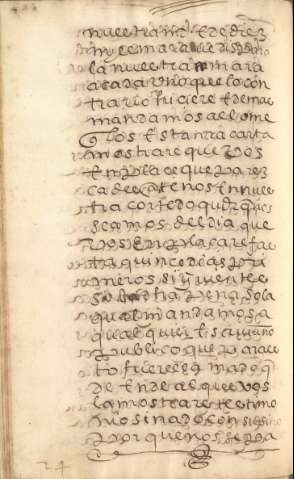 nuestra mrd E de diez
mill mrs para la
la nuestra camara
a cada uno que lo con
trario ficiere E demas
mandamos al ome
q vos Esta nra carta
mostrare que vos
Enplaze que parez
cades ante nos En nues
tra corte do quier que
seamos del dia que
vos Enplazare fas
ta quinze dias pri
meros siguientes
so la dha pena so la
qual mandamos a
qual quier Escrivano
publico que para es
to fuere llamado q
de Ende al que vos
la mostrare testimo
nio sinado con su sino
por que nos sepa